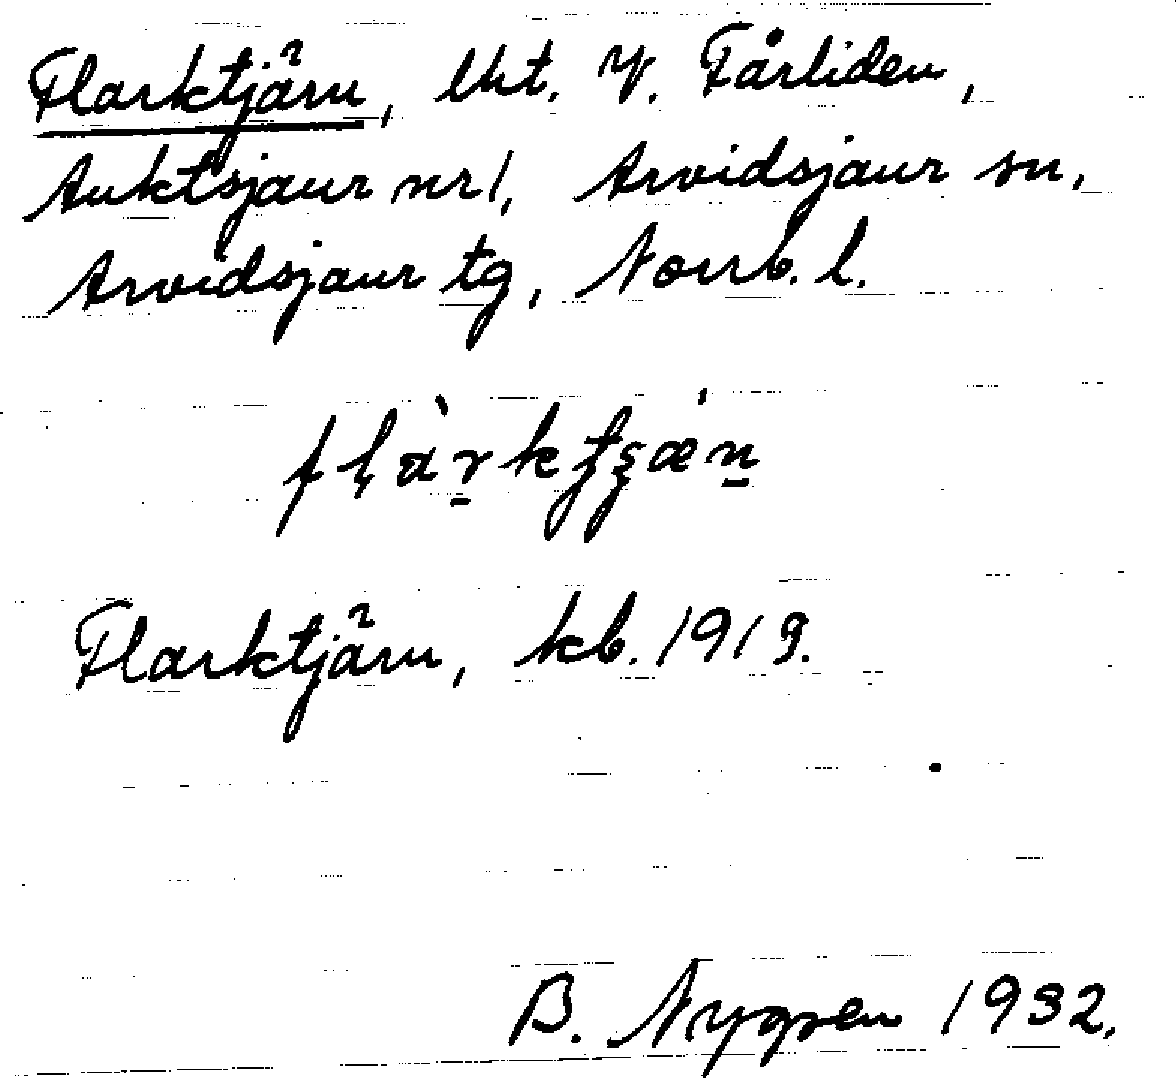 Flarktjärn, lht. V. Fårliden,
Auktsjaur nr 1, Arvidsjaur sn,
Arvidsjaur tg, Norrb. l.
Flarktjärn, kb. 1919.
B. Nygren 1932.